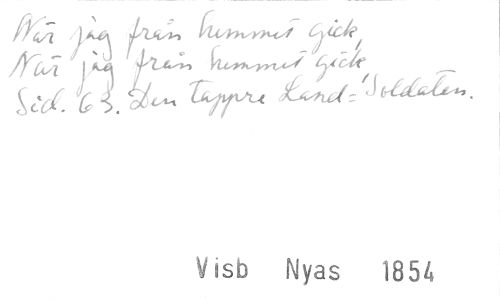 När jag från hemmet gick,
När jag från hemmet gick,
Sid. 63. Den tappre Land=Soldaten.
Visb Nyas 1854